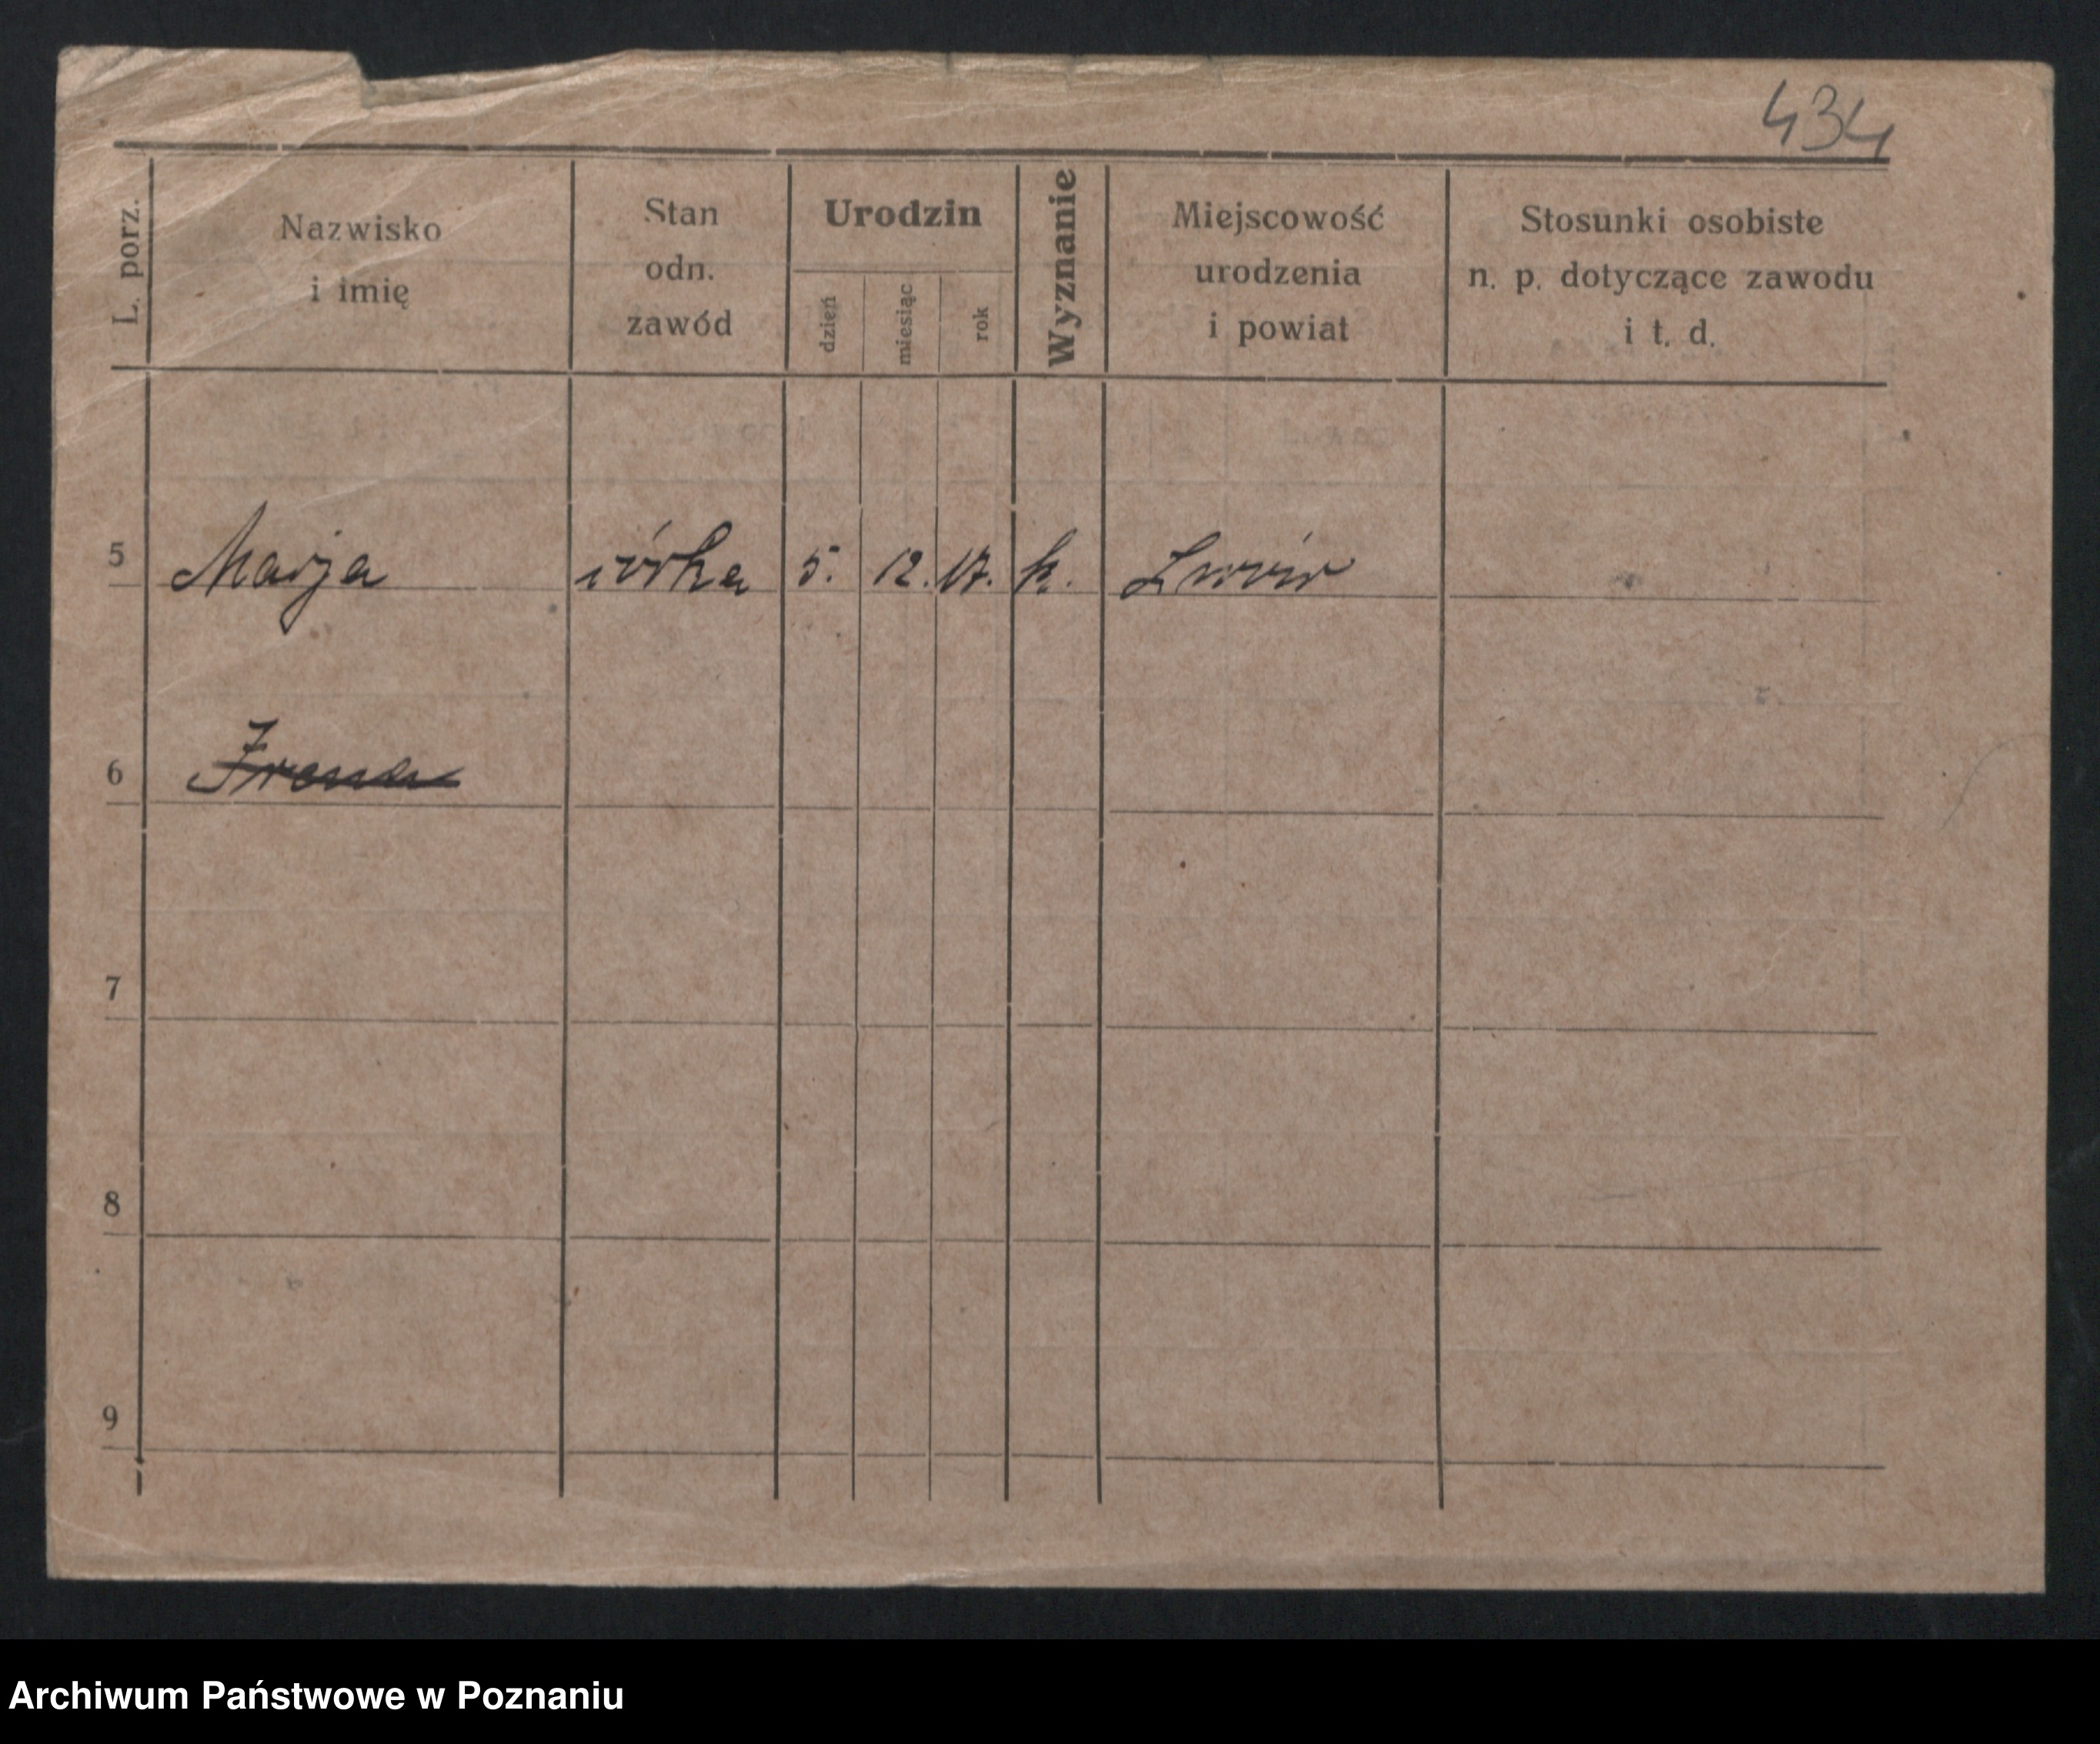 434
L. porz.
Nazwisko
i imię
Stan
odn.
zawód
Urodzin
dzień
miesiąc
rok
Wyznanie
Miejscowość
urodzenia
i powiat
Stosunki osobiste
n. p. dotyczące zawodu
i t. d.
5 Marja córka 5. 12. 17. k. Lwów
6 Irena
7
8
9
Archiwum Państwowe w Poznaniu